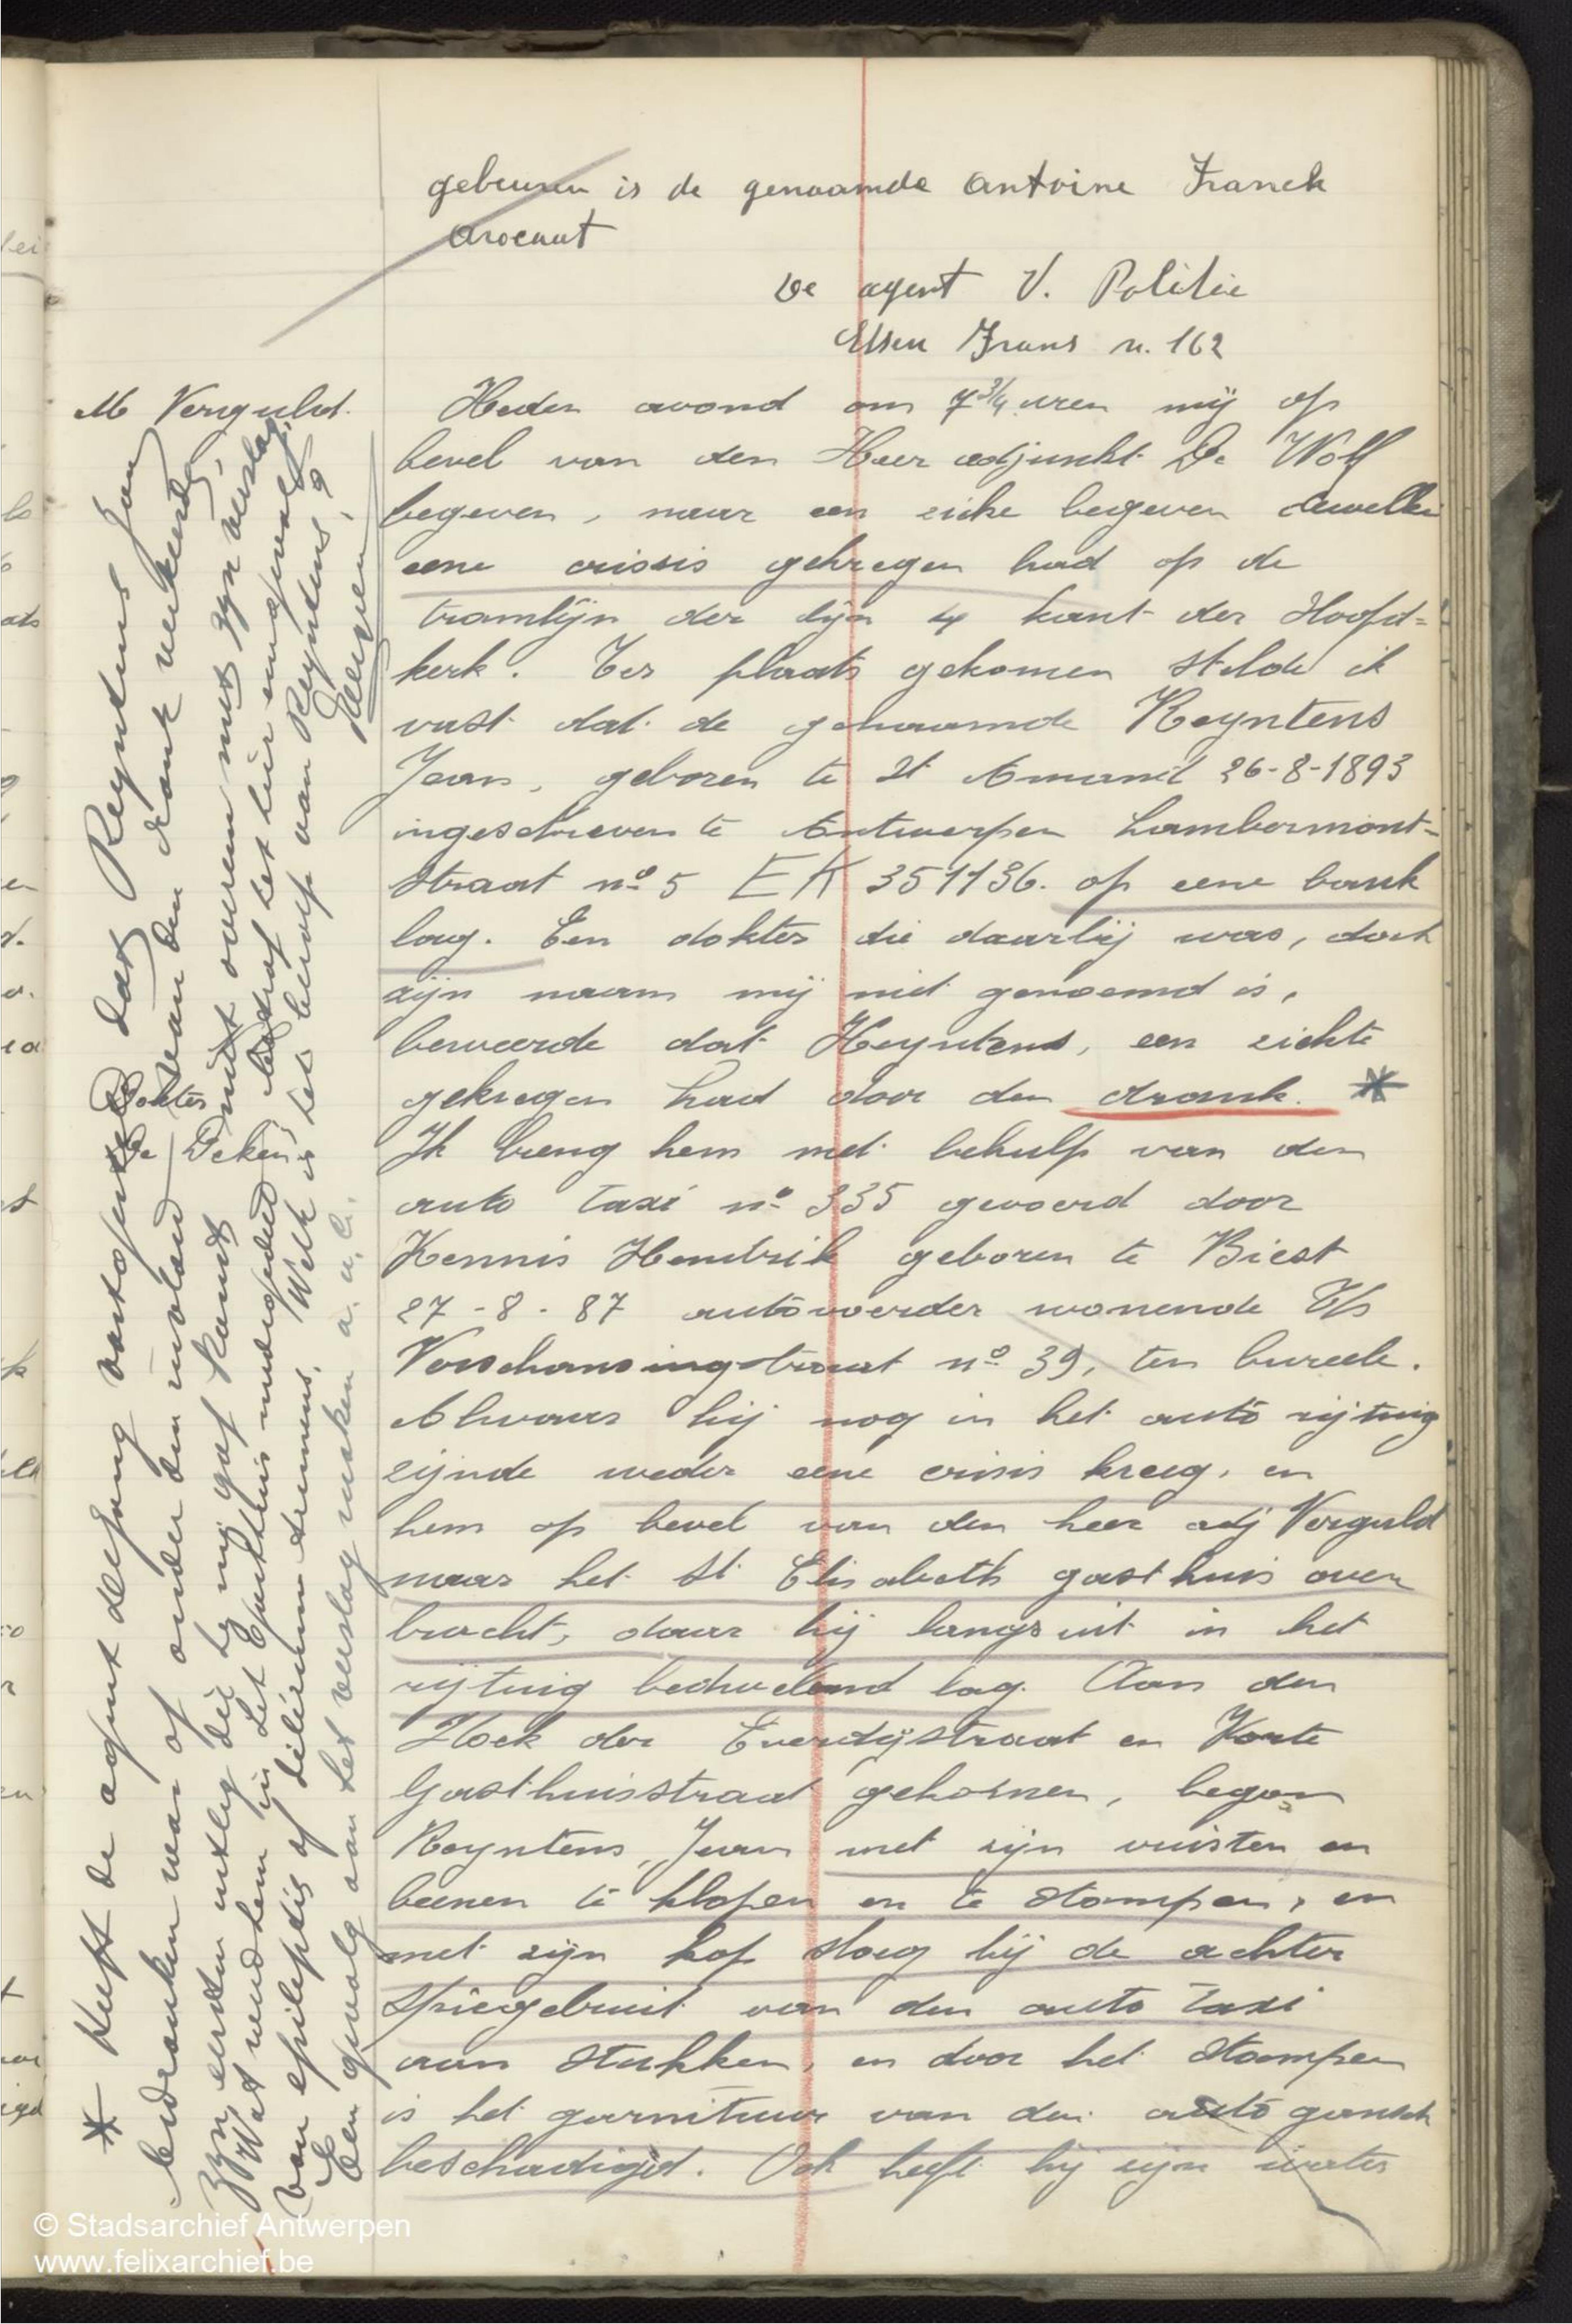 gebeuren is de genaamde Antoine Franck
avocaat
De agent V. Politie
Elsen Frans n. 162
M Verguld.
Heden avond om 7 3/4 uren mij op
bevel van den Heer adjunkt De Wolf
begeven, naar een zieke begeven dewelke
eene crissis gekregen had op de
tramlijn der lijn 4 kant der Hoofd=
kerk. Ter plaats gekomen stelde ik
vast dat de genaamde Reyntens
Jean, geboren te St Amand 26-8-1893
ingeschreven te Antwerpen Lambermont-
straat nº 5 EK 351136. op eene bank
lag. Een dokter die daarbij was, doch
zijn naam mij niet genoemd is,
beweerde dat Reyntens, een ziekte
gekregen had door den drank. *
Ik breng hem met behulp van den
auto taxi nº 335 gevoerd door
Kennis Hendrik geboren te Biest
27-8-87 autovoerder wonende
Verschansingstraat nº 39, ten bureele.
Alwaar hij nog in het auto rijtuig
zijnde weder eene crisis kreeg, en
hem op bevel van den heer adj Verguld
naar het St Elisabeth gasthuis over
bracht, daar hij langs uit in het
rijtuig bedwelmd lag. Aan den
Hoek der Everdijstraat en Korte
Gasthuisstraat gekomen, begon
Reyntens, Jean met zijn vuisten en
beenen te klopen en te stampen, en
met zijn kop sloeg hij de achter
spiegelruit van den auto taxi
aan stukken, en door het stampen
is het garnituur van den auto gansch
beschadigd. Ook heeft hij zijn water
* Heeft de agent deszang vastgesteld dat Reyntens Jean
bedronken was of onder den invloed van den drank verkeerde,
zyn eersten uitleg die hy my gaf komt niet overeen met zyn verslag.
Wat werd hem in het Gasthuis medegedeeld betraf het hier een geval
van epilepsis of délirium tremens. Welk is het beroep aan Reyntens?
Een gevolg aan het verslag maken a.u.b.
Dokter
De Deken
© Stadsarchief Antwerpen
www.felixarchief.be